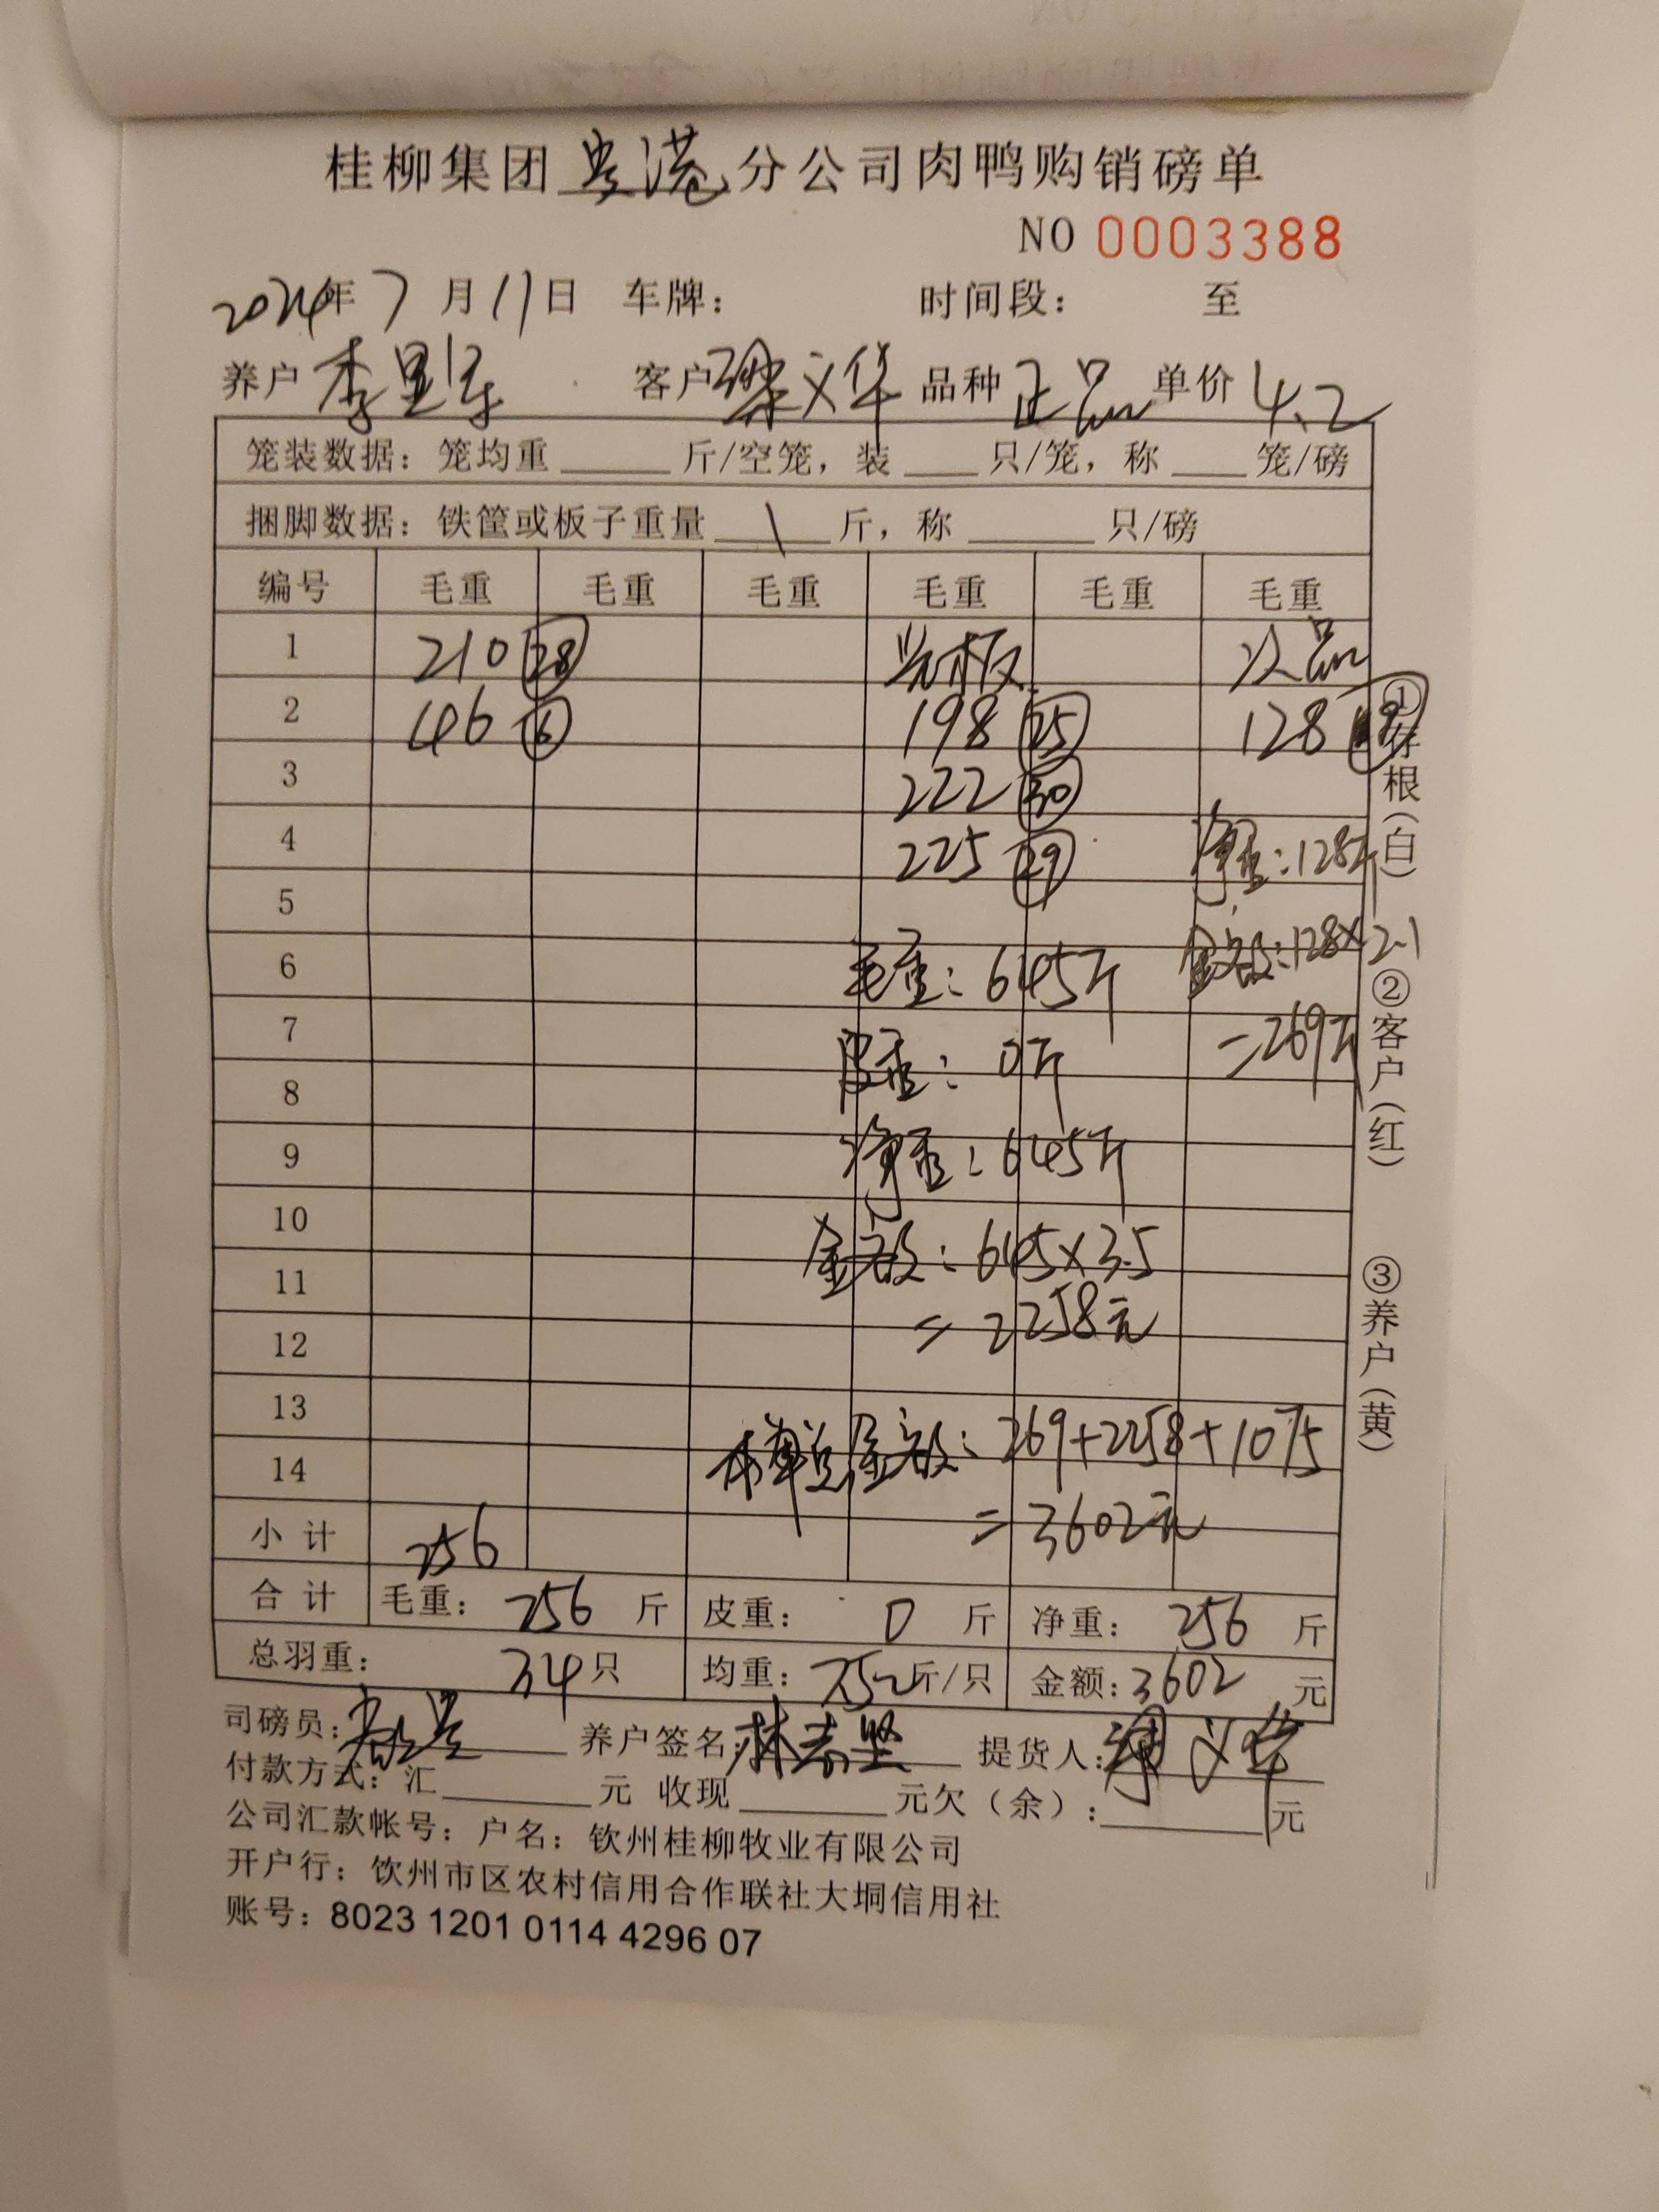 桂柳集团粤港分公司肉鸭购销磅单
NO 0003388
2024年 7 月 11 日 车牌: 时间段: 至
养户 李 客户 梁义华 品种 正品 单价 4.2
笼装数据: 笼均重 ____ 斤/空笼, 装 ___ 只/笼, 称 ___ 笼/磅
捆脚数据: 铁筐或板子重量 \ 斤, 称 _____ 只/磅
编号 毛重 毛重 毛重 毛重 毛重 毛重
1 210 28 光板 次品
2 46 6 198 25 128
3 222 30
4 225 29 净重: 128斤
5
6 毛重: 645斤 金额: 128×2.1
7 皮重: 0斤 =269元
8
9 净重: 645斤
10 金额: 645×3.5
11 = 2258元
12
13 本单总金额: 269+2258+1075
14 = 3602元
小计 256
合计 毛重: 256 斤 皮重: 0 斤 净重: 256 斤
总羽重: 34只 均重: 7.52斤/只 金额: 3602 元
司磅员: 养户签名: 林志坚 提货人: 义华
付款方式: 汇____元 收现____元欠(余):____元
公司汇款帐号: 户名: 钦州桂柳牧业有限公司
开户行: 饮州市区农村信用合作联社大垌信用社
账号: 8023 1201 0114 4296 07
①存根(白)
②客户(红)
③养户(黄)